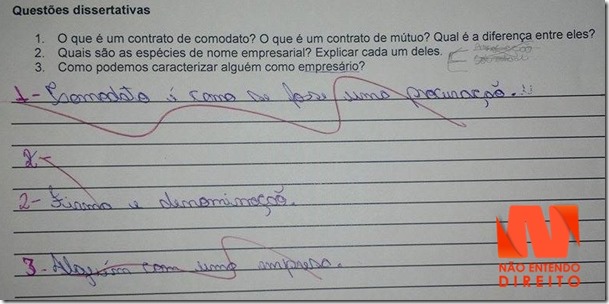 Questões dissertativas
1. O que é um contrato de comodato? O que é um contrato de mútuo? Qual é a diferença entre eles?
2. Quais são as espécies de nome empresarial? Explicar cada um deles.
3. Como podemos caracterizar alguém como empresário?
1- Comodato é como se fosse uma procuração.
2-
2- Firma e denominação.
3- Alguém com uma empresa.
NÃO ENTENDO
DIREITO